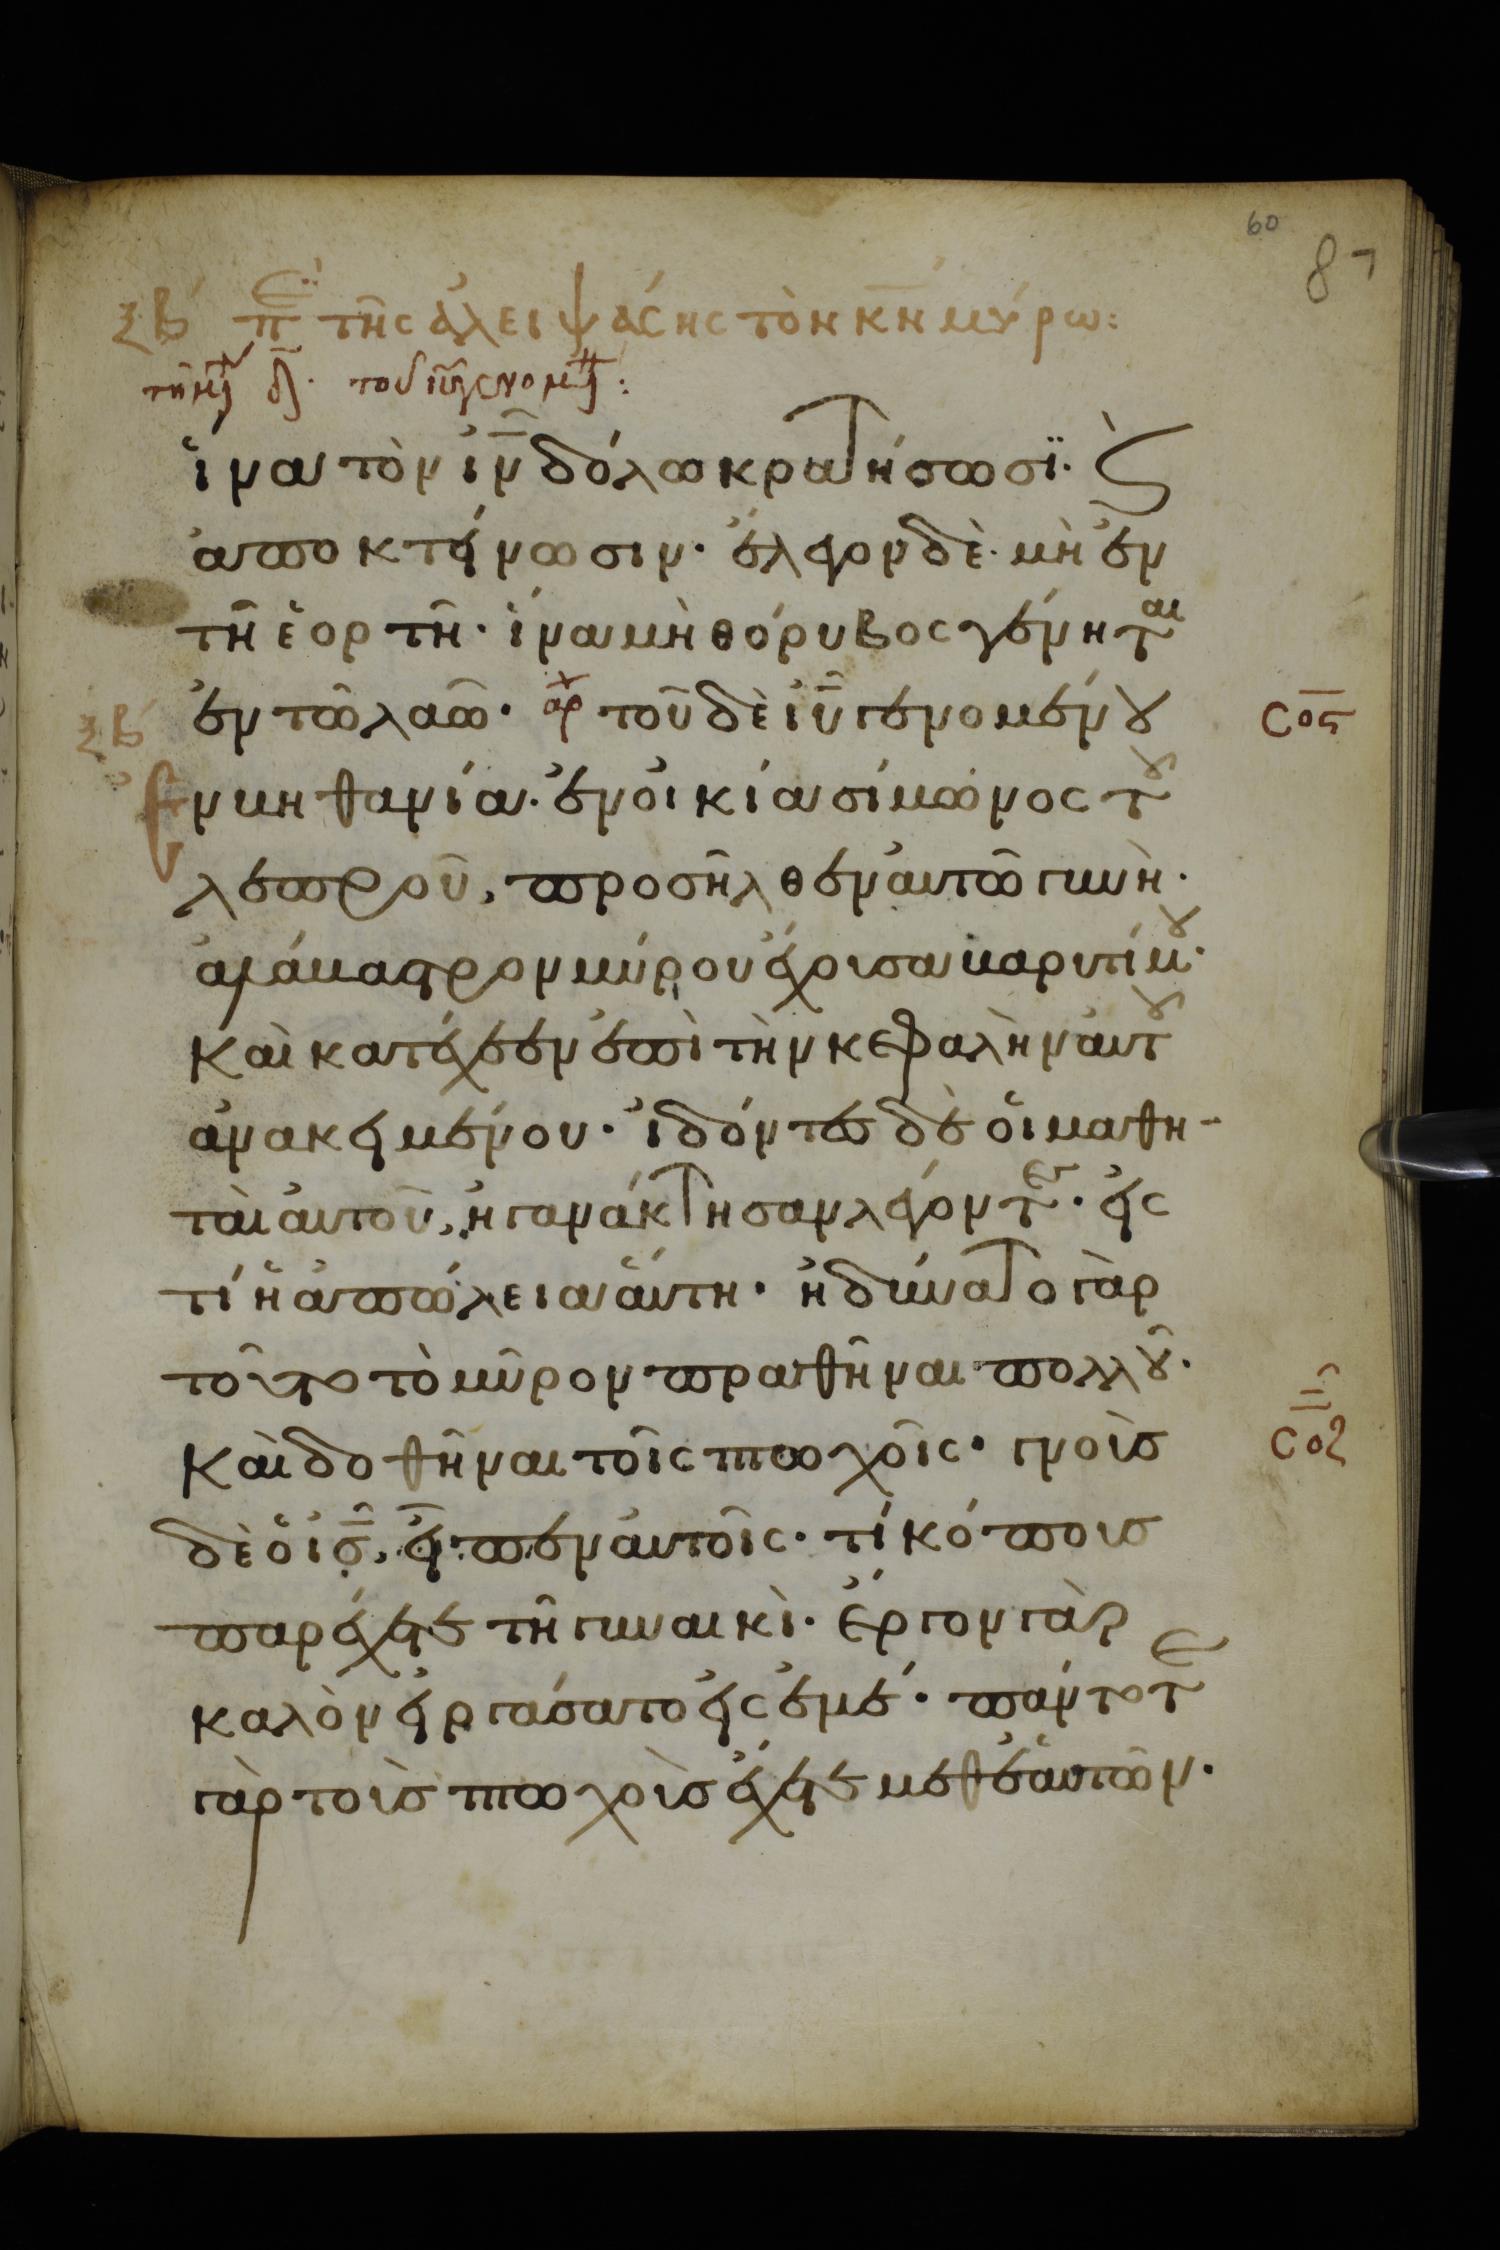 60
87
ξβ´ πε̅ρι τῆς ἀλειψάσης τὸν κν̅ μύρω:
τῇ μγ δ̅. τοῦ ιυ̅ γενομεν:
ἵνα τὸν ἰν̅ δόλω κρατήσωσϊ· ϛ̀
ἀποκτείνωσιν· ἔλεγον δὲ· μὴ ἐν
τῆ ἑορτῆ· ἵνα μὴ θόρυβος γένηται
ἐν τῶ λαῶ· αρχ τοῦ δὲ ἰυ̅ γενομένου
σος̅
ξβ´
Ἐν βηθανία· ἐν οἰκία σίμωνος τοῦ
λεπροῦ, προσῆλθεν αὐτῶ γυνὴ·
ἀλάβαστρον μύρου ἔχουσα βαρυτίμου·
Καὶ κατέχεεν ἐπὶ τὴν κεφαλὴν αὐτοῦ
ἀνακειμένου· ἰδόντες δὲ οἱ μαθη-
ταὶ αὐτοῦ, ἠγανάκτησαν λέγοντες· εἰς
τί ἡ ἀπώλεια αὕτη· ἠδύνατο γὰρ
τοῦτο τὸ μῦρον πραθῆναι πολλοῦ·
Καὶ δοθῆναι τοῖς πτωχοῖς· γνοὺς
σοζ
δὲ ὁ ις̅, εἶπεν αὐτοῖς· τί κόπους
παρέχετε τῆ γυναικὶ· ἔργον γὰρ
καλὸν εἰργάσατο εἰς ἐμέ· πάντοτε
γὰρ τοὺς πτωχοὺς ἔχετε μεθ ἑαυτῶν·